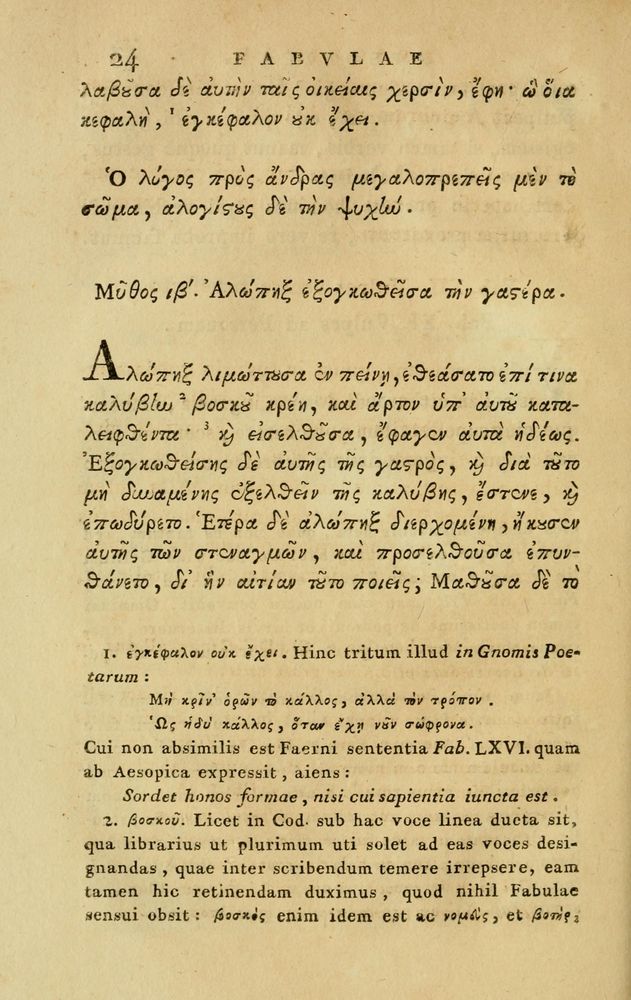 24 FABVLAE
λαβοῦσα δὲ ἀυτὴν ταῖς ὀικείαις χερσὶν, ἔφη· ὢ ὅια
κεφαλὴ, ¹ ἐγκέφαλον ὀυκ ἔχει.
Ὁ λόγος πρὸς ἄνδρας μεγαλοπρεπεῖς μὲν τὸ
σῶμα, ἀλογίστους δὲ τὴν ψυχὴν.
Μῦθος ιβ'. Ἀλώπηξ ἐξογκωθεῖσα τὴν γαστέρα.
Ἀλώπηξ λιμώττουσα ἐν πείνῃ, ἐθεάσατο ἐπί τινα
καλύβην ² βοσκοῦ κρέη, καὶ ἄρτον ὑπ' ἀυτοῦ κατα-
λειφθέντα· ³ καὶ εἰσελθοῦσα, ἔφαγεν ἀυτὰ ἡδέως.
Ἐξογκωθείσης δὲ ἀυτῆς τῆς γαστρὸς, καὶ διὰ τοῦτο
μὴ δυναμένης ἐξελθεῖν τῆς καλύβης, ἔστενε, καὶ
ἐπωδύρετο. Ἑτέρα δὲ ἀλώπηξ διερχομένη, ἤκουσεν
ἀυτῆς τῶν στεναγμῶν, καὶ προσελθοῦσα ἐπυν-
θάνετο, δι' ἣν αἰτίαν τοῦτο ποιεῖς; Μαθοῦσα δὲ τὸ
1. ἐγκέφαλον ουκ ἔχει. Hinc tritum illud in Gnomis Poe-
tarum:
Μὴ κρῖν' ὁρῶν τὸ κάλλος, ἀλλὰ τὸν τρόπον.
Ὡς ἡδὺ κάλλος, ὅταν ἔχῃ νοῦν σώφρονα.
Cui non absimilis est Faerni sententia Fab. LXVI. quam
ab Aesopica expressit, aiens:
Sordet honos formae, nisi cui sapientia iuncta est.
2. βοσκοῦ. Licet in Cod. sub hac voce linea ducta sit,
qua librarius ut plurimum uti solet ad eas voces desi-
gnandas, quae inter scribendum temere irrepsere, eam
tamen hic retinendam duximus, quod nihil Fabulae
sensui obsit: βοσκὸς enim idem est ac νομεὺς, et βοτὴρ,